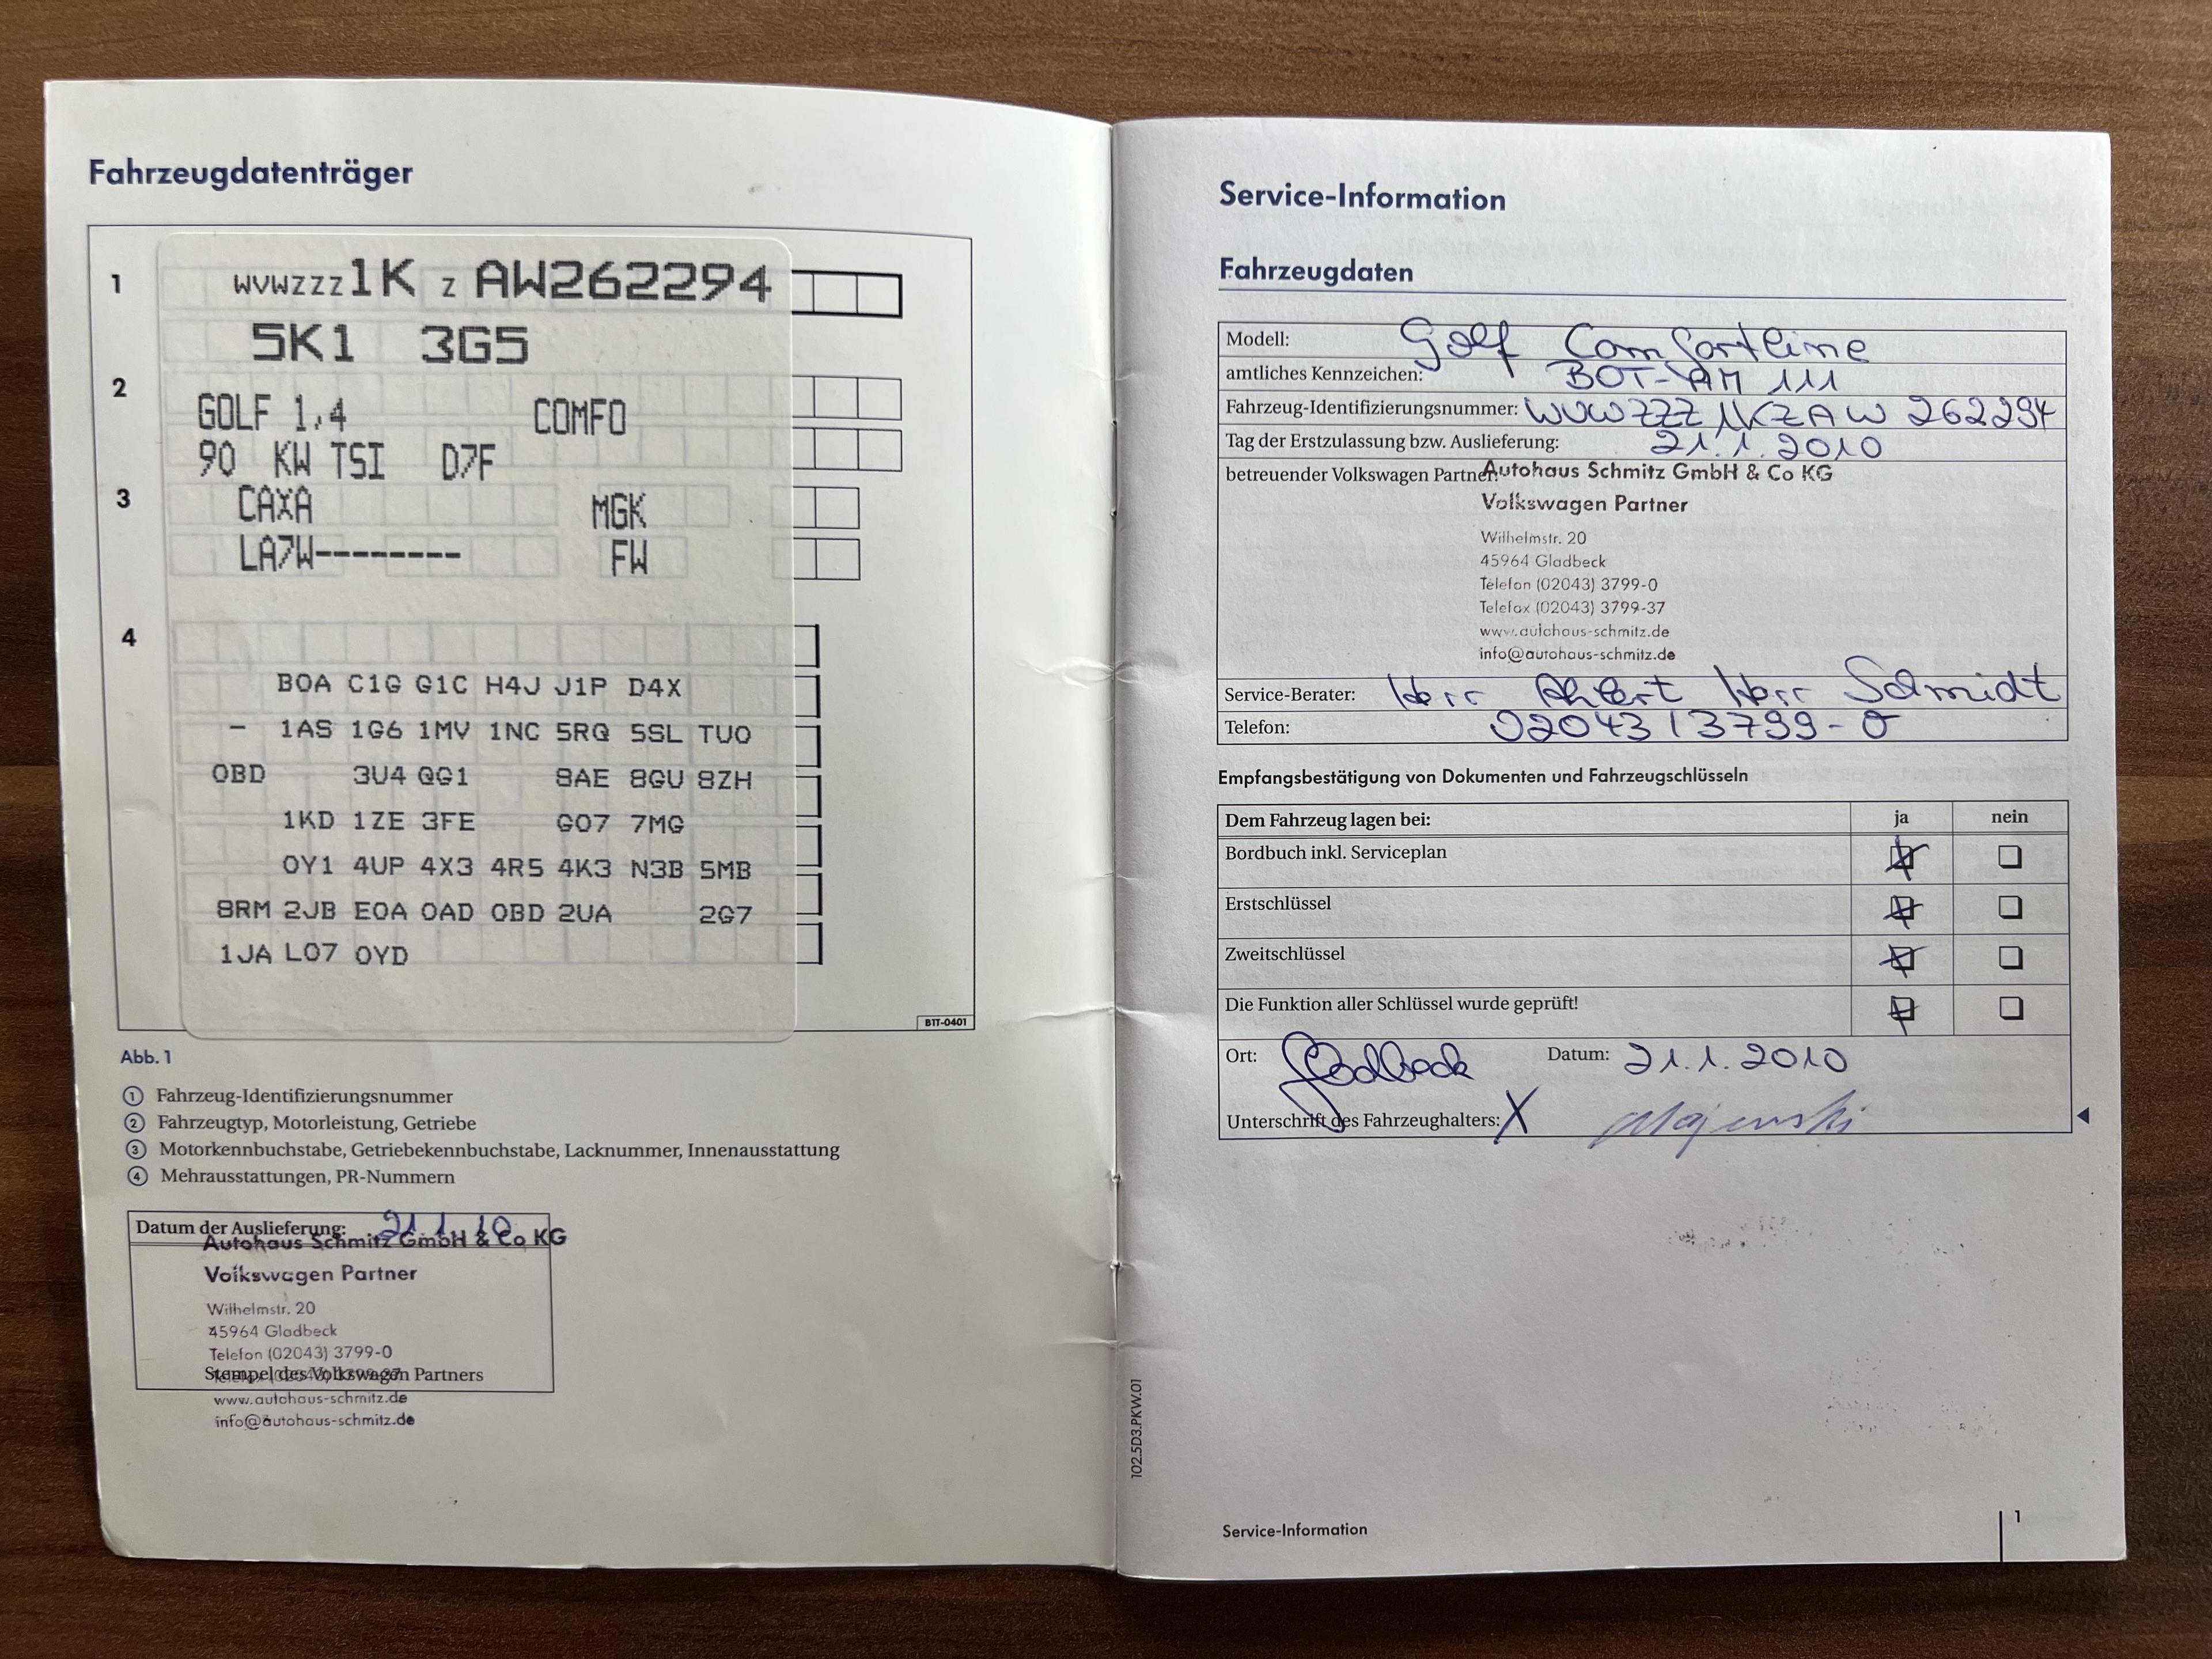 Fahrzeugdatenträger
1
WVWZZZ1K Z AW262294
5K1 3G5
2
GOLF 1,4 COMFO
90 KW TSI D7F
3
CAXA MGK
LA7W-------- FW
4
BOA C1G G1C H4J J1P D4X
- 1AS 1G6 1MV 1NC 5RQ 5SL TUO
OBD 3U4 QG1 8AE 8GU 8ZH
1KD 1ZE 3FE GO7 7MG
OY1 4UP 4X3 4R5 4K3 N3B 5MB
8RM 2JB EOA OAD OBD 2UA 2G7
1JA LO7 OYD
B1T-0401
Abb. 1
1 Fahrzeug-Identifizierungsnummer
2 Fahrzeugtyp, Motorleistung, Getriebe
3 Motorkennbuchstabe, Getriebekennbuchstabe, Lacknummer, Innenausstattung
4 Mehrausstattungen, PR-Nummern
Datum der Auslieferung: 21.1.10
Autohaus Schmitz GmbH & Co KG
Volkswagen Partner
Wilhelmstr. 20
45964 Gladbeck
Telefon (02043) 3799-0
Stempel des Volkswagen Partners
www.autohaus-schmitz.de
info@autohaus-schmitz.de
Service-Information
Fahrzeugdaten
Modell: Golf Comfortline
amtliches Kennzeichen: BOT-AM 111
Fahrzeug-Identifizierungsnummer: WVWZZZ1KZAW262294
Tag der Erstzulassung bzw. Auslieferung: 21.1.2010
betreuender Volkswagen Partner: Autohaus Schmitz GmbH & Co KG
Volkswagen Partner
Wilhelmstr. 20
45964 Gladbeck
Telefon (02043) 3799-0
Telefax (02043) 3799-37
www.autohaus-schmitz.de
info@autohaus-schmitz.de
Service-Berater: Herr Ahlert Herr Schmidt
Telefon: 02043 / 3799-0
Empfangsbestätigung von Dokumenten und Fahrzeugschlüsseln
Dem Fahrzeug lagen bei: ja nein
Bordbuch inkl. Serviceplan
Erstschlüssel
Zweitschlüssel
Die Funktion aller Schlüssel wurde geprüft!
Ort: Gladbeck Datum: 21.1.2010
Unterschrift des Fahrzeughalters: X
102.5D3.PKW.01
Service-Information 1